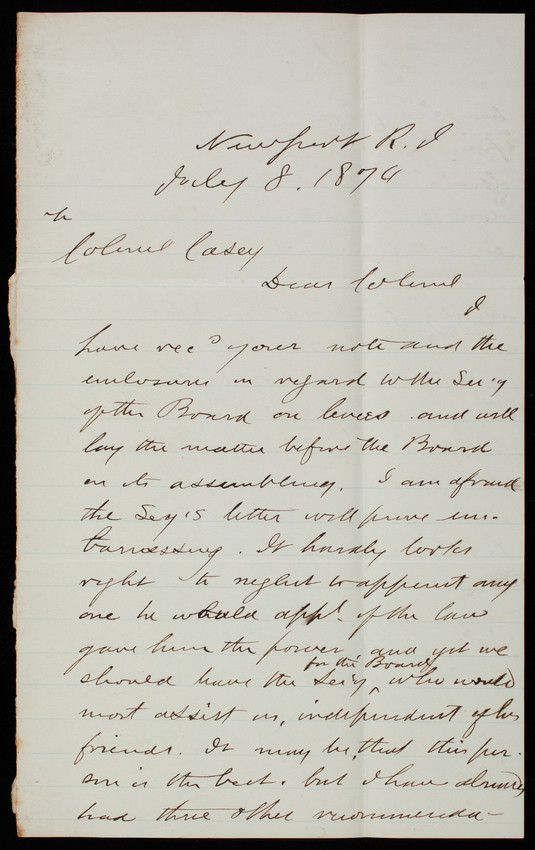 Newport R. I
July 8. 1874
To
Colonel Casey
Dear Colonel
I
have rec'd your note and the
enclosure in regard to the Sec'y
of the Board on levees. and will
lay the matter before the Board
on its assembling. I am afraid
the Sec'y's letter will prove em-
barrassing. It hardly looks
right to neglect to appoint any
one he would appt. if the law
gave him the power and yet we
should have the Sec'y for the Board, who would
most assist us, independent of his
friends. It may be, that this per-
son is the best. but I have already
had three other recommenda-